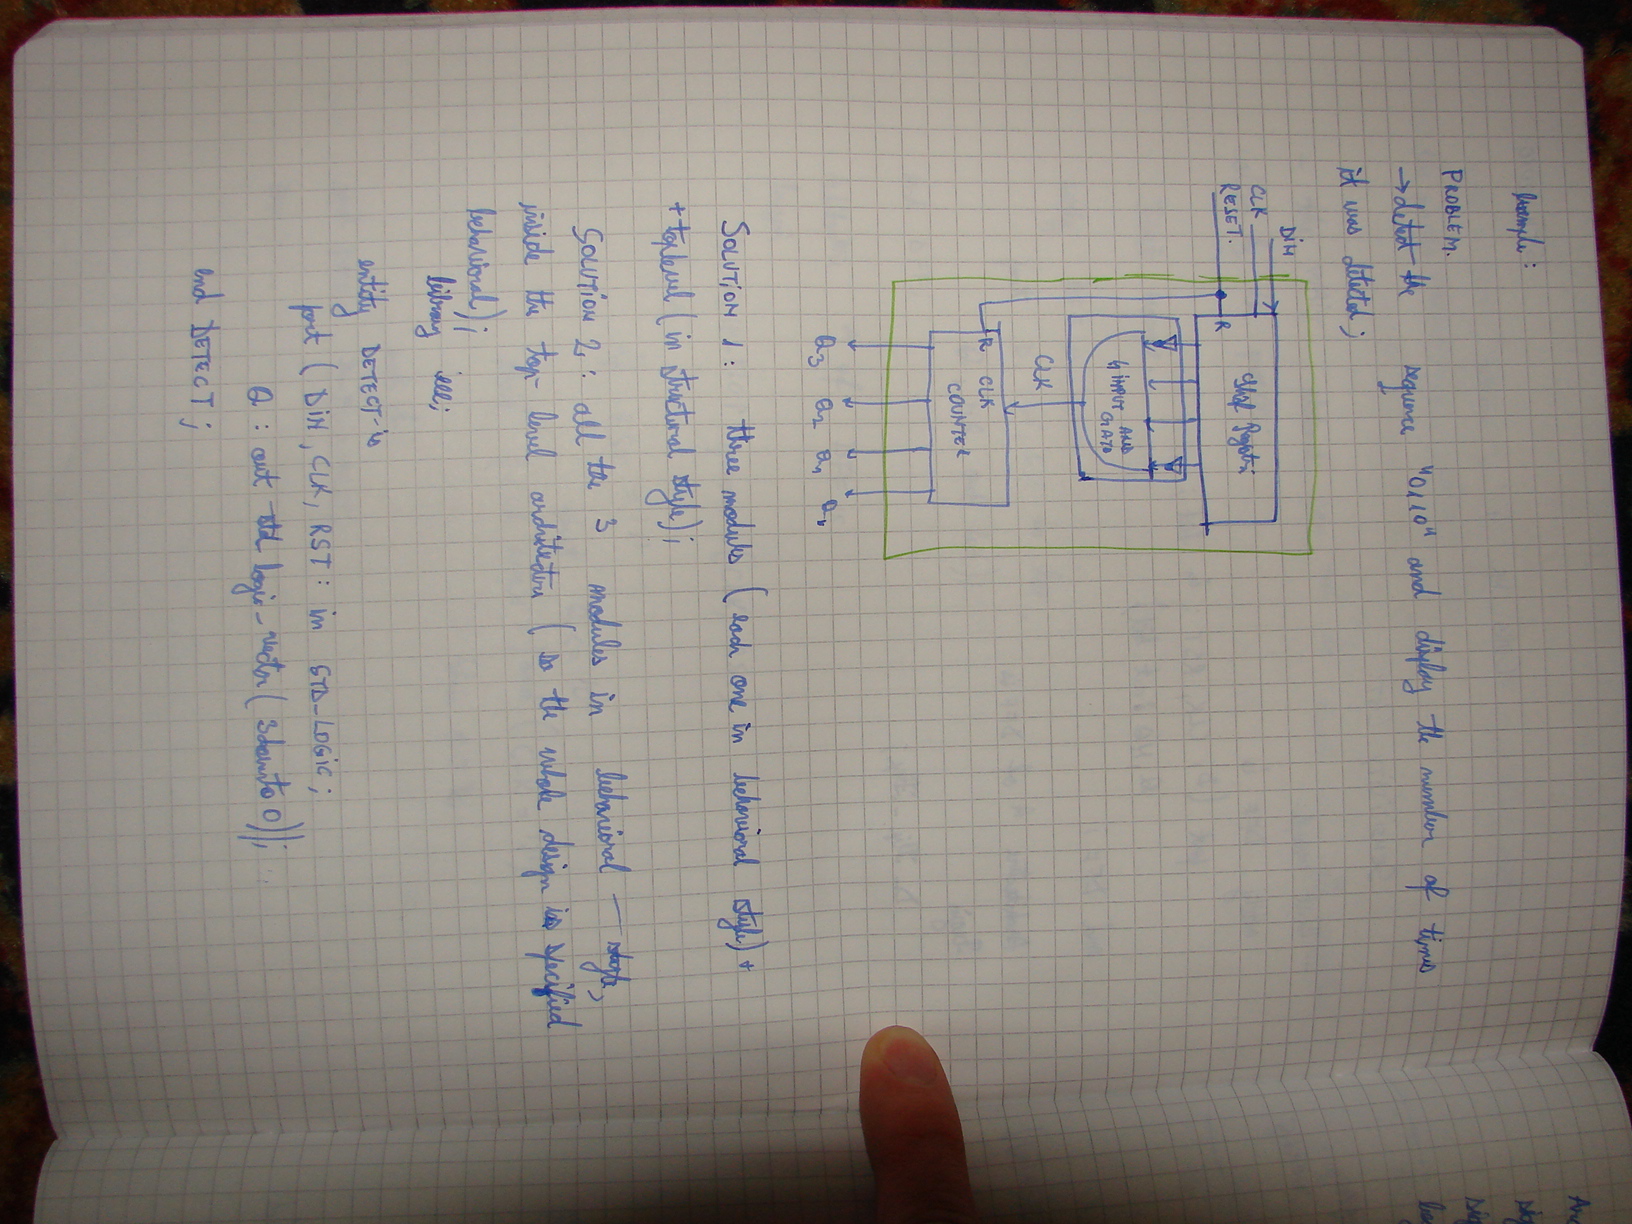 Example:
PROBLEM.
→ detect the sequence "0110" and display the number of times
it was detected;
DIN
CLK
RESET.
R
Shift Register
4 INPUT AND GATE
CLK
R CLK
COUNTER
Q3 Q2 Q1 Q0
SOLUTION 1: three modules (each one in behavioral style) +
+ toplevel (in structural style);
SOLUTION 2: all the 3 modules in behavioral — style,
inside the top-level architecture (so the whole design is specified
behavioral);
library ieee;
entity DETECT is
port (DIN, CLK, RST: in STD_LOGIC;
Q: out std logic_vector(3 downto 0));
end DETECT;